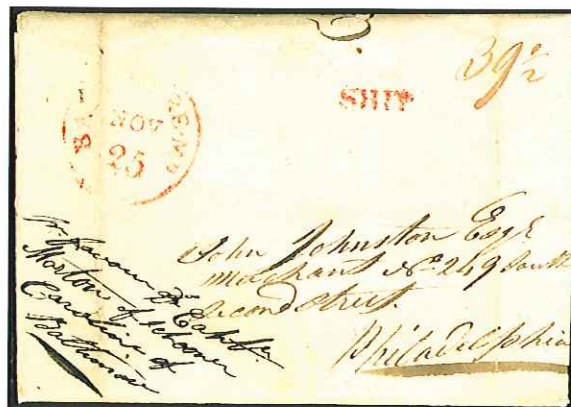 39½
SHIP
NOV
25
John Johnston Esqr
Merchant No 249 South
Second Street.
Philadelphia
Favour of Captn
Morton of Schooner
Caroline of
Baltimore